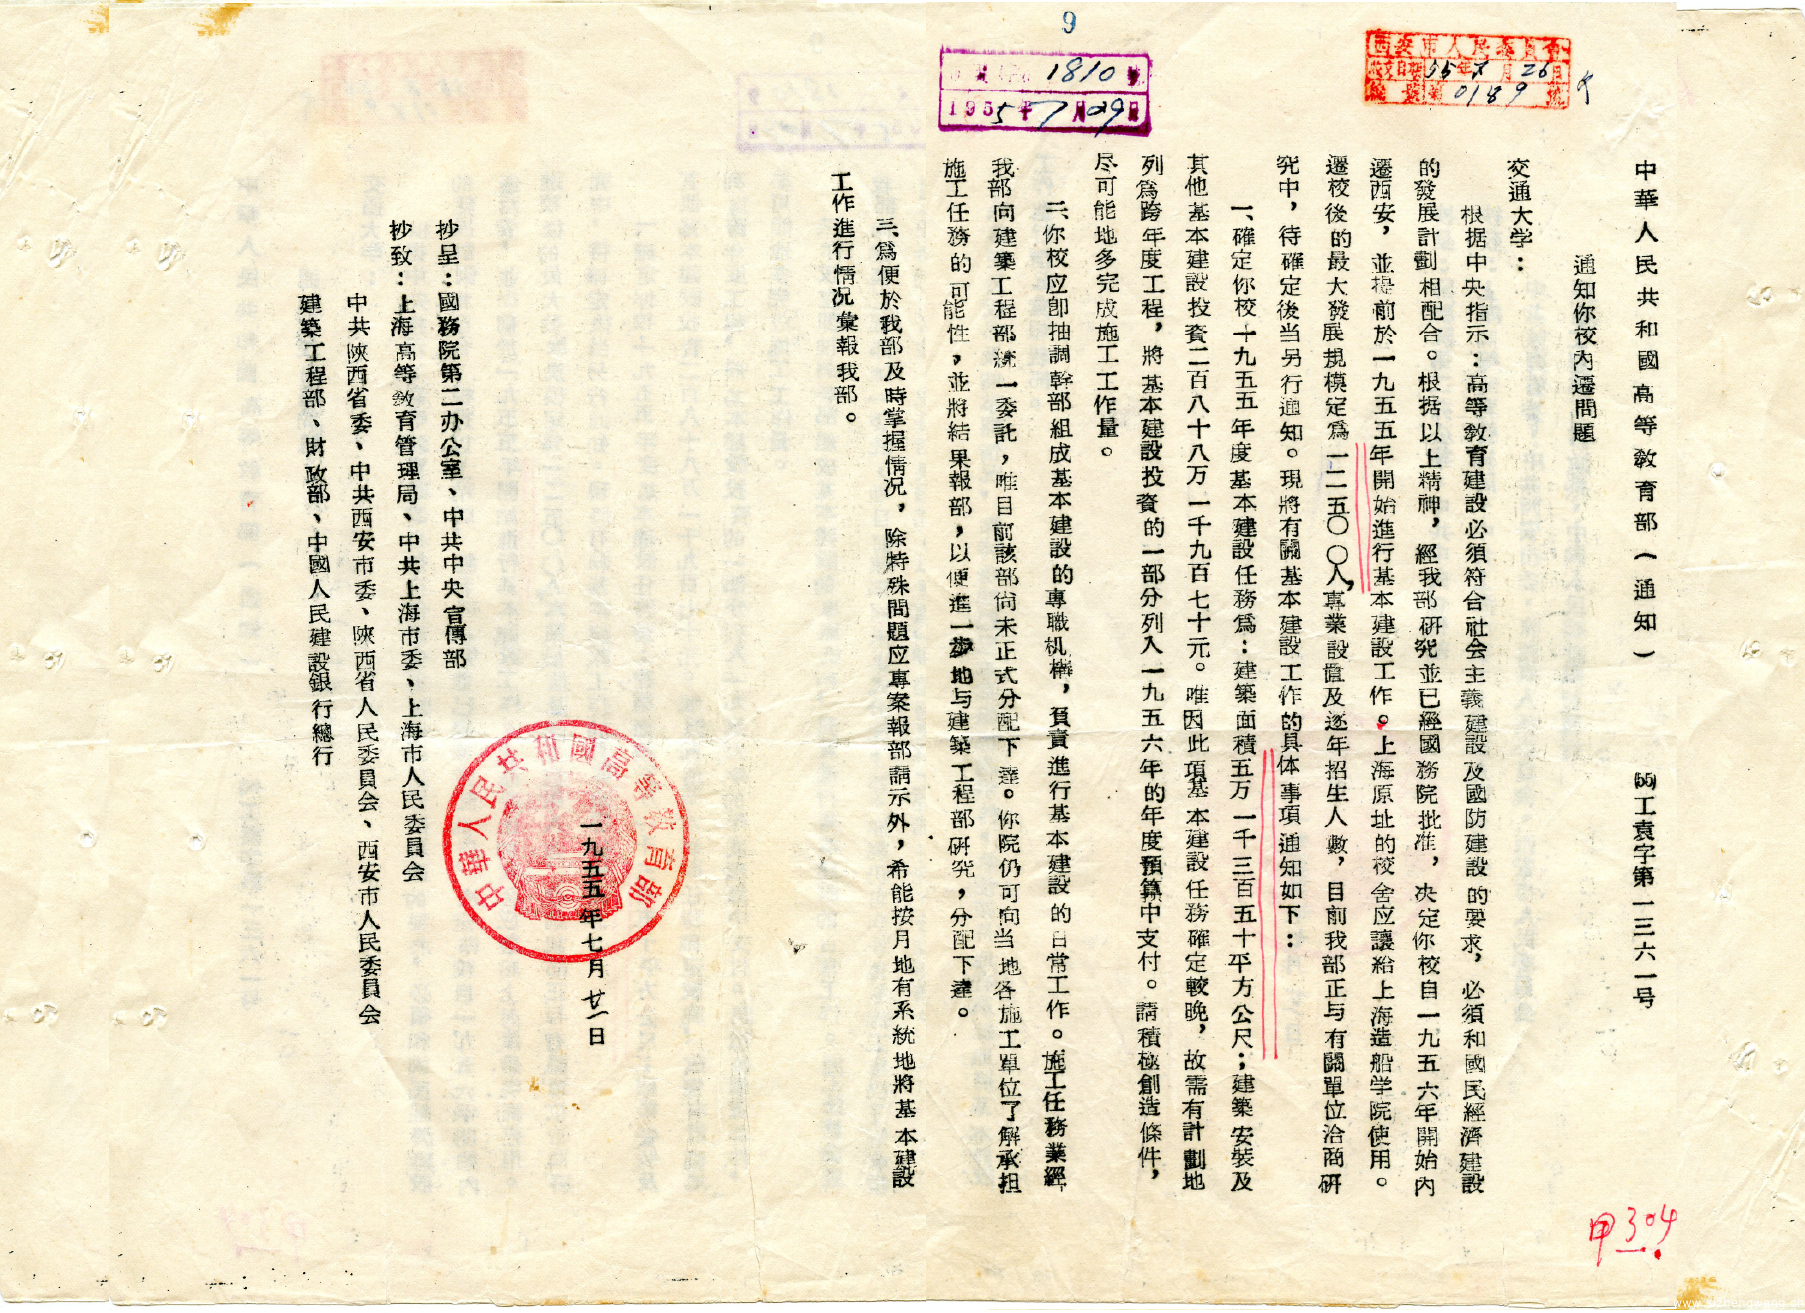 9
1810号
1955年7月29日
西安市人民委員会
收文日期55年7月26日
0189号
中華人民共和國高等教育部（通知） (55)工袁字第一三六一号
通知你校內遷問題
交通大学：
根据中央指示：高等教育建設必須符合社会主義建設及國防建設的要求，必須和國民經濟建設
的發展計劃相配合。根据以上精神，經我部研究並已經國務院批准，决定你校自一九五六年開始內
遷西安，並提前於一九五五年開始進行基本建設工作。上海原址的校舍应讓給上海造船学院使用。
遷校後的最大發展規模定爲一二五〇〇人，專業設置及逐年招生人數，目前我部正与有關單位洽商研
究中，待確定後当另行通知。現將有關基本建設工作的具体事項通知如下：
一、確定你校一九五五年度基本建設任務爲：建築面積五万一千三百五十平方公尺；建築安裝及
其他基本建設投資二百八十八万一千九百七十元。唯因此項基本建設任務確定較晚，故需有計劃地
列爲跨年度工程，將基本建設投資的一部分列入一九五六年的年度預算中支付。請積極創造條件，
尽可能地多完成施工工作量。
二、你校应卽抽調幹部組成基本建設的專職机構，負責進行基本建設的日常工作。施工任務業經
我部向建築工程部統一委託，唯目前該部尙未正式分配下達。你院仍可向当地各施工單位了解承担
施工任務的可能性，並將結果報部，以便進一步地与建築工程部研究，分配下達。
三、爲便於我部及時掌握情况，除特殊問題应專案報部請示外，希能按月地有系統地將基本建設
工作進行情况彙報我部。
一九五五年七月廿一日
中華人民共和國高等教育部
抄呈：國務院第二办公室、中共中央宣傳部
抄致：上海高等教育管理局、中共上海市委、上海市人民委員会
中共陝西省委、中共西安市委、陝西省人民委員会、西安市人民委員会
建築工程部、財政部、中國人民建設銀行總行
甲304